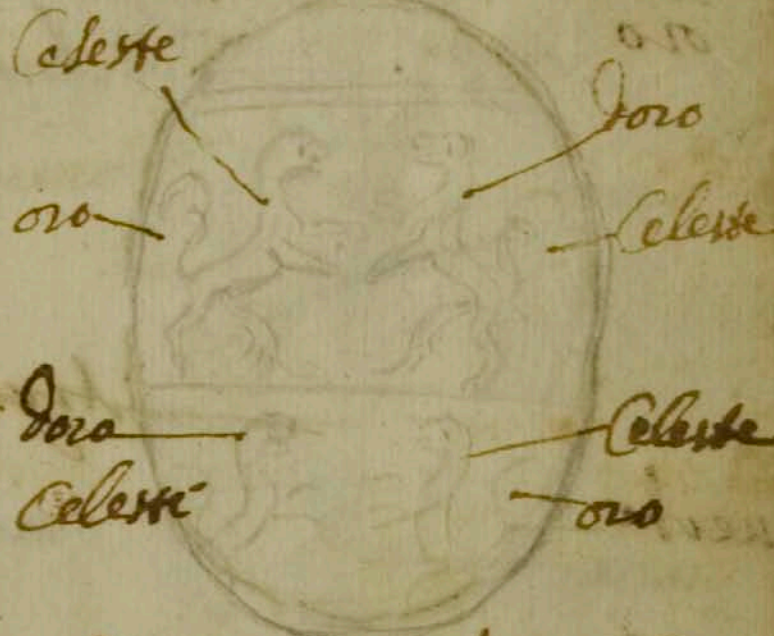 Celeste
doro
oro
Celeste
doro
Celeste
Celeste
oro